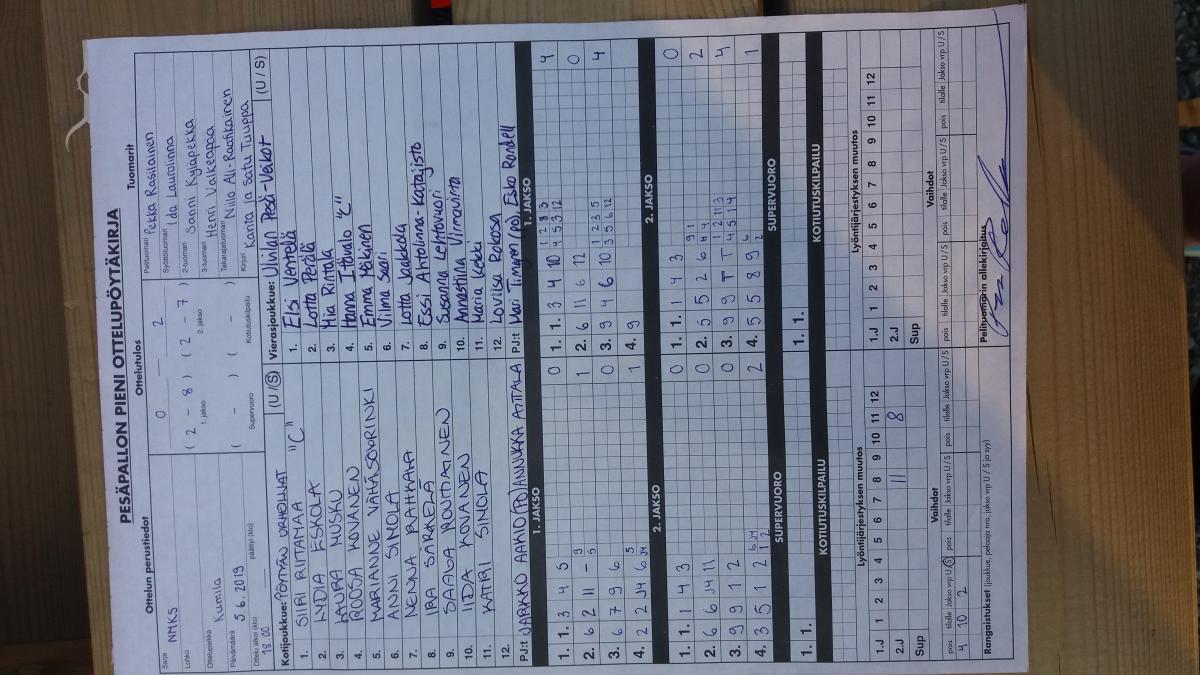 PESÄPALLON PIENI OTTELUPÖYTÄKIRJA
Ottelun perustiedot
Ottelutulos
Tuomarit
Sarja NMKS
Lohko
Ottelupaikka Kumila
Päivämäärä 5.6.2019
Ottelu alkoi (klo) 18:00
päättyi (klo)
0 2
(2 - 8) (2 - 7)
1. jakso 2. jakso
( - ) ( - )
Supervuoro Kotiutuskilpailu
Pelituomari Pekka Rasilainen
Syöttötuomari Ida Lautolinna
2-tuomari Sanni Kyläpekka
3-tuomari Henri Valkeapää
Takarajatuomari Niilo Ali-Raatikainen
Kirjuri Karita ja Satu Tuuppa
Kotijoukkue: PÖYTYÄN URHEILIJAT (U / S)
1. SIIRI RIITAMAA "C"
2. LYDIA ESKOLA
3. LAURA MUSKU
4. ROOSA KOVANEN
5. MARIANNE VÄHÄSÖYRINKI
6. ANNI SIMOLA
7. NENNA RAHKALA
8. IRA SÄRKELÄ
9. SAAGA ROUTIAINEN
10. IIDA KOVANEN
11. KATRI SINOLA
12.
PJ:t JARKKO AAKKO (PO) ANNUKKA AITTALA
Vierasjoukkue: Ulvilan Pesä-Veikot (U / S)
1. Elsi Ventelä
2. Lotta Perälä
3. Mia Rintala
4. Hanna Itävalo "C"
5. Emma Mäkinen
6. Vilma Saari
7. Lotta Jaakkola
8. Essi Ahtolinna-Katajisto
9. Susanna Lehtovuori
10. Annastiina Virnavirta
11. Maria Koski
12. Loviisa Rokosa
PJ:t Mari Timonen (po), Esko Randell
1. JAKSO
1. 1. 3 4 5 0
2. 6 2 11 - 9 5 1
3. 6 7 9 6 0
4. 2 2 J4 6 5 J4 1
2. JAKSO
1. 1. 1 4 3 0
2. 6 6 J4 11 0
3. 9 9 1 2 0
4. 3 5 1 2 2
SUPERVUORO
1. 1.
KOTIUTUSKILPAILU
1. JAKSO
1. 1. 3 4 10 4 5 3 12 1 2 8 3 4
2. 6 11 6 12 0
3. 9 4 6 10 3 5 6 12 1 2 3 5 4
4. 9
2. JAKSO
1. 1. 1 4 3 0
2. 5 5 2 6 2
3. 9 9 T T 4 5 1 4 4
4. 5 5 8 9 1
SUPERVUORO
1. 1.
KOTIUTUSKILPAILU
Lyöntijärjestyksen muutos
1.J 1 2 3 4 5 6 7 8 9 10 11 12
2.J 11 8
Sup
Vaihdot
pois tilalle Jakso vrp U / S pois tilalle Jakso vrp U / S pois tilalle Jakso vrp U / S
4 10 2
Lyöntijärjestyksen muutos
1.J 1 2 3 4 5 6 7 8 9 10 11 12
2.J
Sup
Vaihdot
pois tilalle Jakso vrp U / S pois tilalle Jakso vrp U / S pois tilalle Jakso vrp U / S
Rangaistukset (joukkue, pelaaja nro, jakso vrp U / S ja syy)
Pelituomarin allekirjoitus